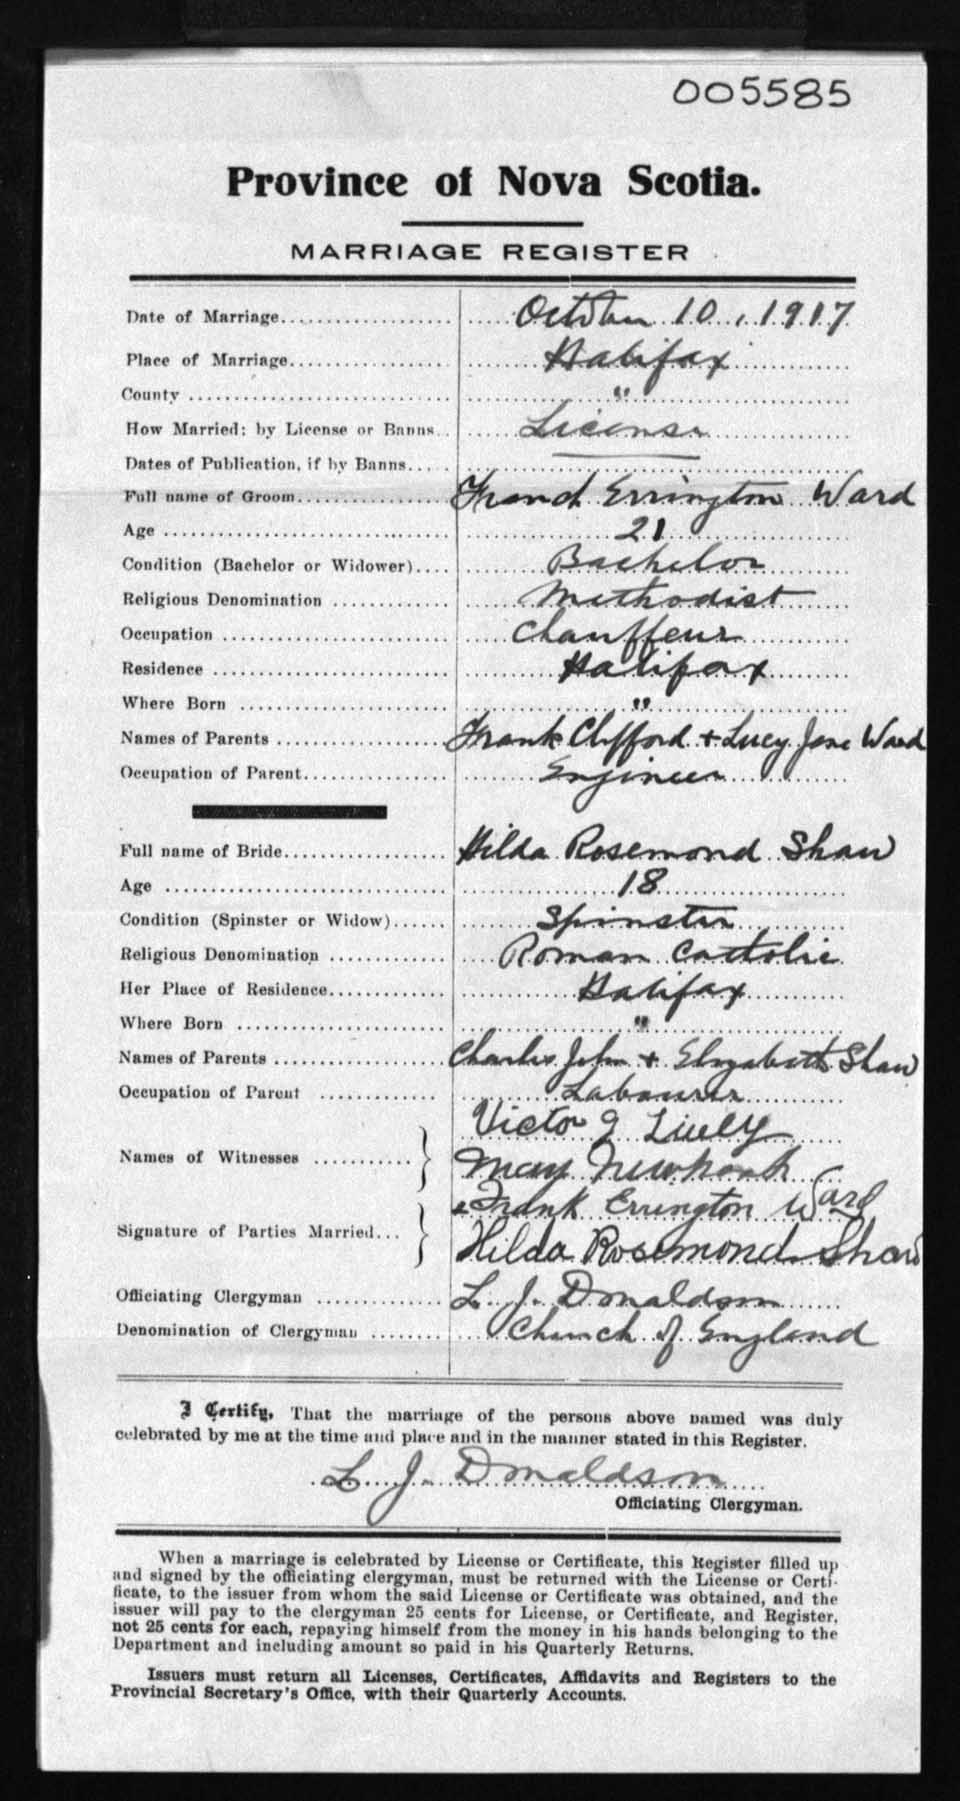 005585
Province of Nova Scotia.
MARRIAGE REGISTER
Date of Marriage October 10, 1917
Place of Marriage Halifax
County "
How Married: by License or Banns License
Dates of Publication, if by Banns
Full name of Groom Frank Errington Ward
Age 21
Condition (Bachelor or Widower) Bachelor
Religious Denomination Methodist
Occupation Chauffeur
Residence Halifax
Where Born "
Names of Parents Frank Clifford + Lucy Jane Ward
Occupation of Parent Engineer
Full name of Bride Hilda Rosemond Shaw
Age 18
Condition (Spinster or Widow) Spinster
Religious Denomination Roman Catholic
Her Place of Residence Halifax
Where Born "
Names of Parents Charles John + Elizabeth Shaw
Occupation of Parent Labourer
Victor J Lively
Names of Witnesses
May
Frank Errington Ward
Signature of Parties Married
Hilda Rosemond Shaw
Officiating Clergyman L. J. Donaldson
Denomination of Clergyman Church of England
I Certify, That the marriage of the persons above named was duly
celebrated by me at the time and place and in the manner stated in this Register.
L. J. Donaldson
Officiating Clergyman.
When a marriage is celebrated by License or Certificate, this Register filled up
and signed by the officiating clergyman, must be returned with the License or Certi-
ficate, to the issuer from whom the said License or Certificate was obtained, and the
issuer will pay to the clergyman 25 cents for License, or Certificate, and Register,
not 25 cents for each, repaying himself from the money in his hands belonging to the
Department and including amount so paid in his Quarterly Returns.
Issuers must return all Licenses, Certificates, Affidavits and Registers to the
Provincial Secretary's Office, with their Quarterly Accounts.